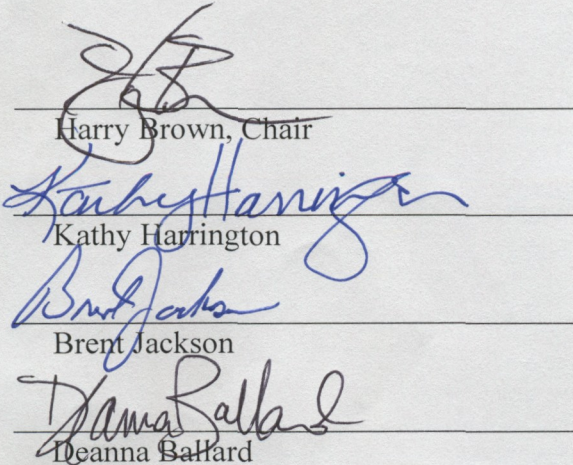 Harry Brown, Chair
Kathy Harrington
Kathy Harrington
Brent Jackson
Brent Jackson
Deanna Ballard
Deanna Ballard